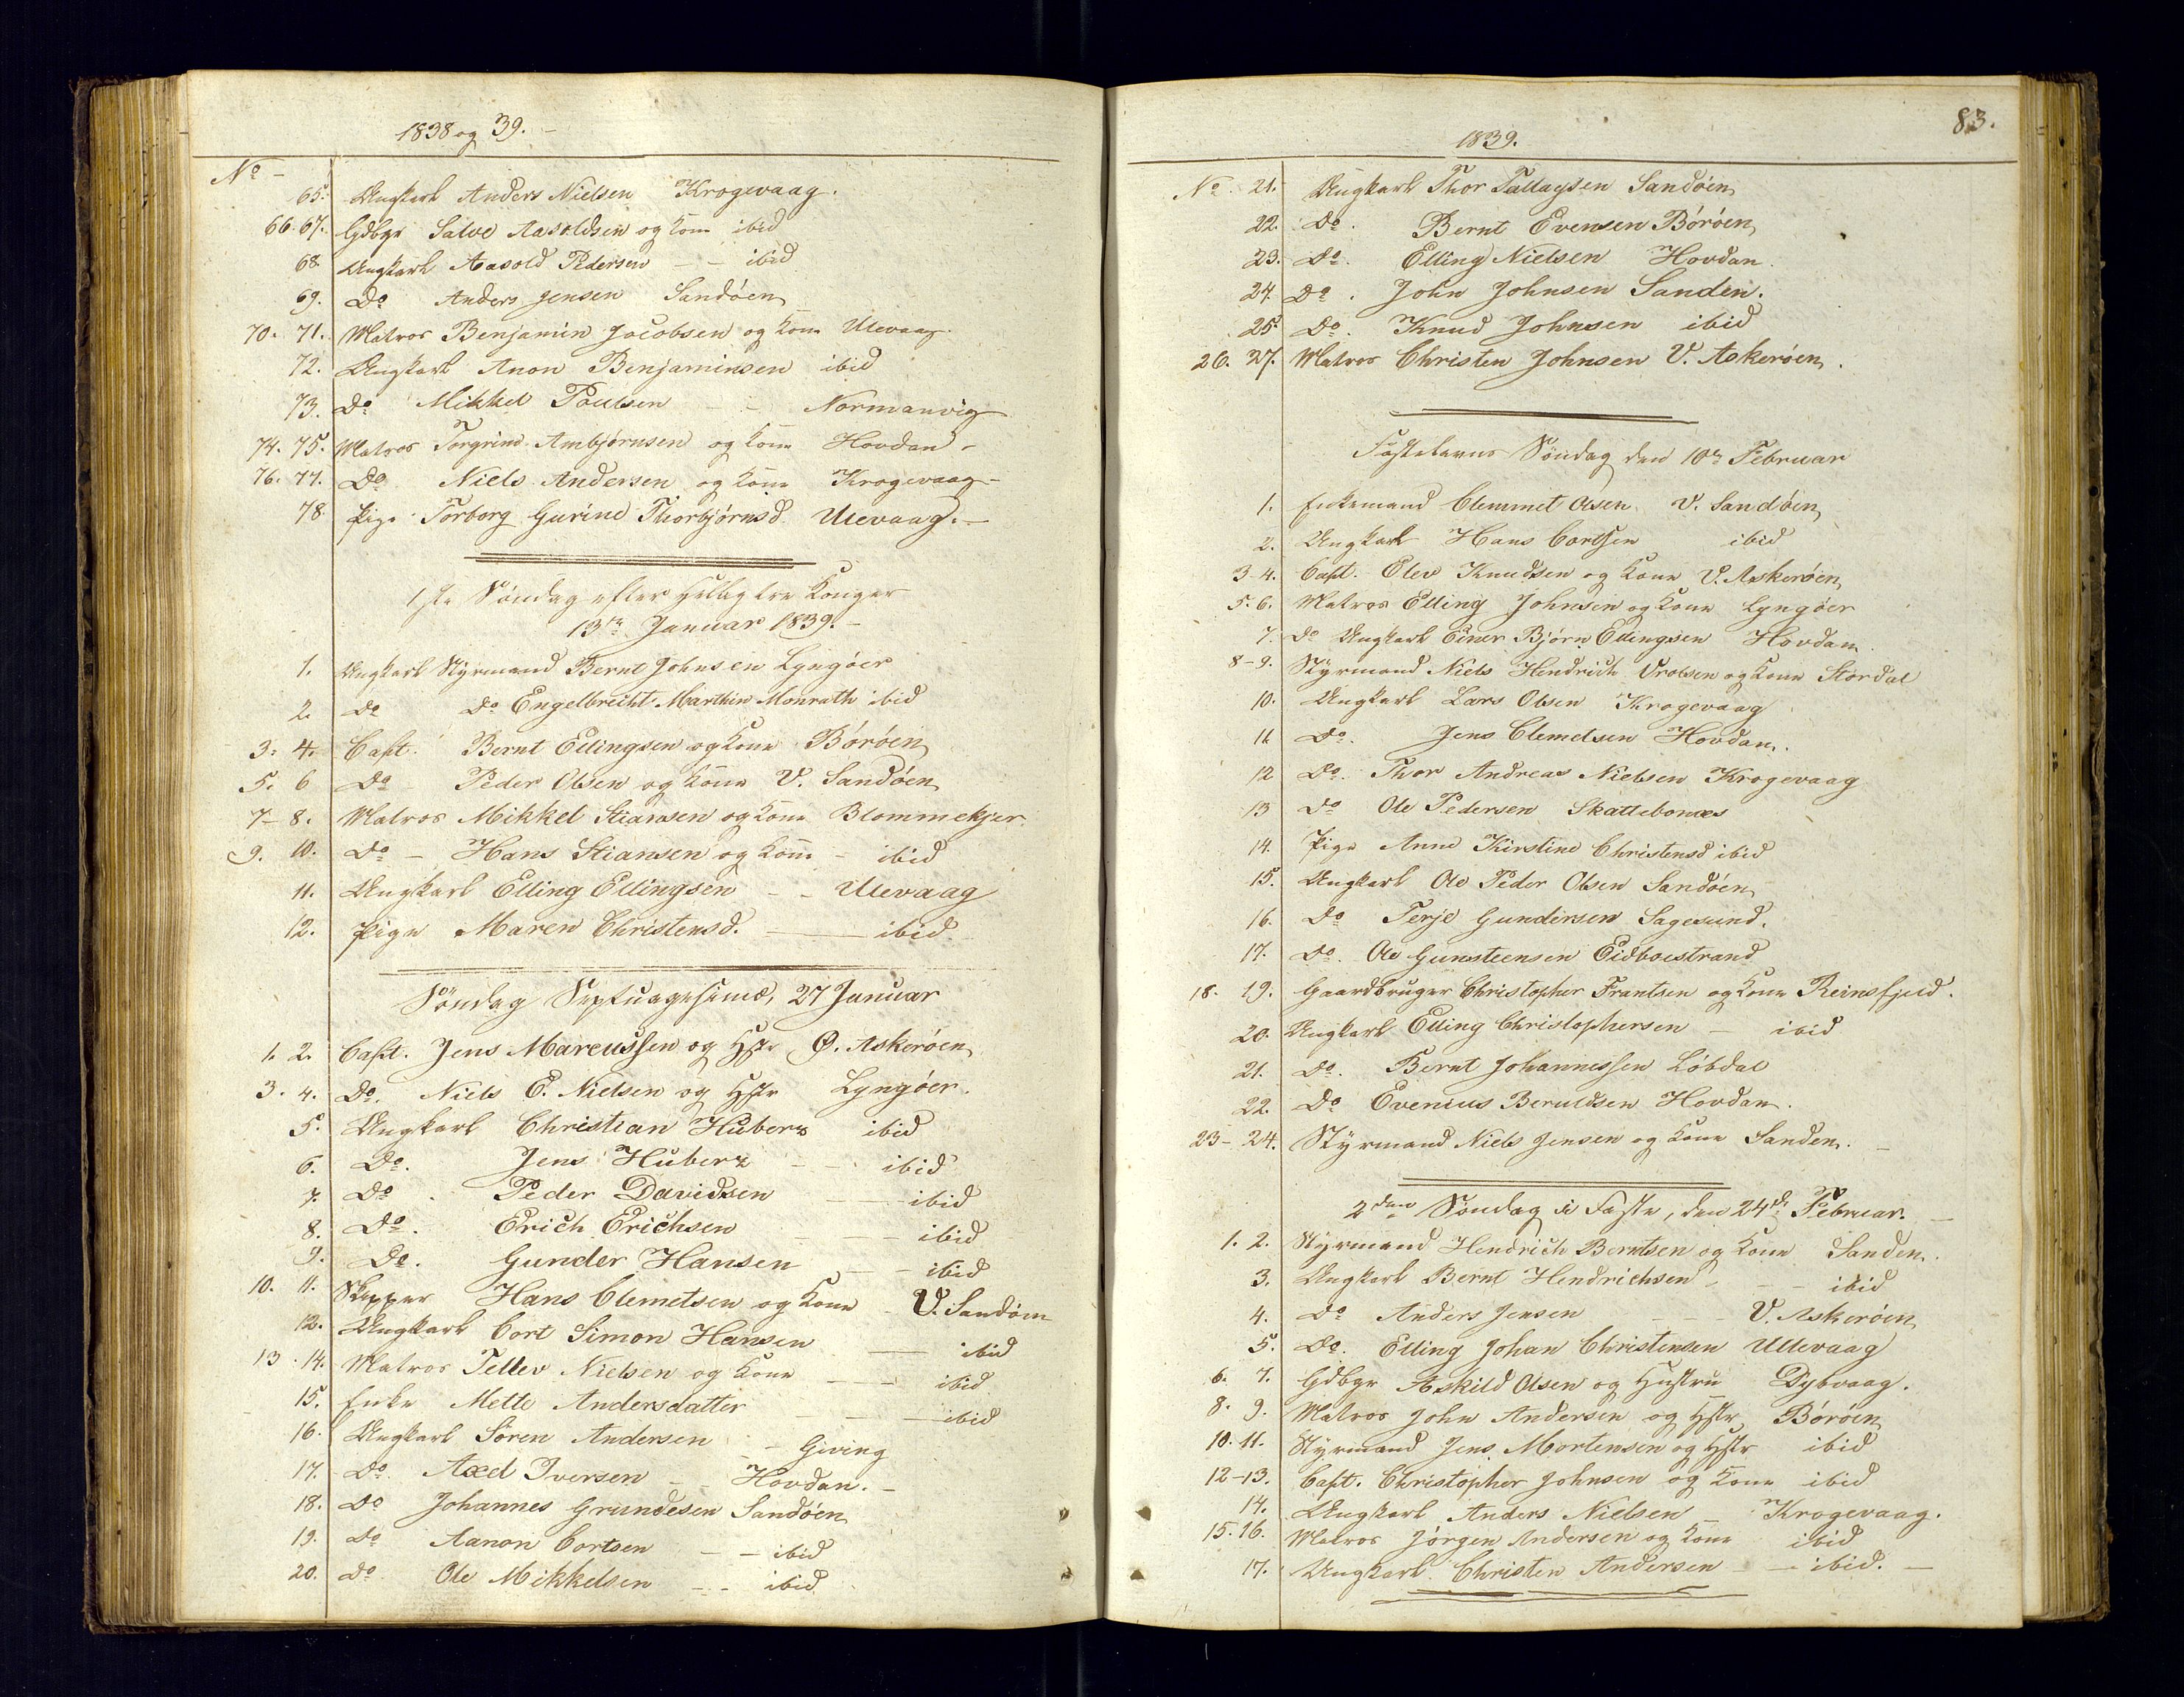 1838 og 39. –
No –
65. Ungkarl Anders Nielsen Krogevaag.
66. 67. Gdbgr Salve Aasoldsen og Kone ibid
68. Ungkarl Aasold Pedersen – – ibid
69. Do Anders Jensen Sandøen
70. 71. Matros Benjamin Jacobsen og Kone Ulevaag.
72. Ungkarl Anon Benjaminsen ibid
73. Do Mikkel Poulsen – – Normanvig
74. 75. Matros Torgrim Ambjørnsen og Kone Hovdan –
76. 77. Do Niels Andersen og Kone Krogevaag –
78. Pige Torborg Gurine Thorbjørnsd. Ulevaag. –
1ste Søndag efter Hellig tre Konger
13de Januar 1839. –
1. Ungkarl Styrmand Bernt Johnsen Lyngøer
2. Do Do Engelbrecht Marthin Monrath ibid
3. 4. Capt. Bernt Ellingsen og Kone Børøen
5. 6 Do Peder Olsen og Kone V. Sandøen
7 – 8. Matros Mikkel Stiansen og Kone Blommekjer.
9. 10. Do – Hans Stiansen og Kone – ibid
11. Ungkarl Elling Ellingsen – – Ulevaag
12. Pige Maren Christensd. – ibid.
Søndag Septuagesimæ, 27 Januar
1. 2. Capt. Jens Marcussen og Hstr Ø. Askerøen
3. 4. Do. Niels E. Nielsen og Hstr Lyngøer.
5. Ungkarl Christian Huberz ibid
6. Do. Jens Huberz – – ibid
7. Do. Peder Davidsen – ibid
8. Do. Erich Erichsen – – ibid
9. Do. Gunder Hansen – – ibid
10. 11. Skipper Hans Clemetsen og Kone – V. Sandøen
12. Ungkarl Cort Simon Hansen – ibid
13. 14. Matros Tellev Nielsen og Kone – – ibid
15. Enke Mette Andersdatter – – ibid
16. Ungkarl Søren Andersen – Giving
17. Do. Axel Iversen – Hovdan. –
18. Do Johannes Grundesen Sandøen
19. Do Aanon Cortsen – – ibid
20. Do. Ole Mikkelsen – – ibid.
83.
1839.
No. 21. Ungkarl Thor Tallagsen Sandøen
22. Do. Bernt Evensen Børøen
23. Do. Elling Nielsen Hovdan.
24. Do. John Johnsen Sanden.
25. Do. Knud Johnsen ibid
26. 27. Matros Christen Johnsen V. Askerøen.
Fastelavns Søndag den 10de Februar
1. Enkemand Clemmet Olsen V. Sandøen
2. Ungkarl Hans Cortsen ibid
3–4. Capt. Elev Knudsen og Kone V. Askerøen
5. 6. Matros Elling Johnsen og Kone Lyngøer
7. Do Ungkarl Einer Bjørn Ellingsen Hovdan.
8–9. Styrmand Niels Hendrich Vrolsen og Kone Stordal
10. Ungkarl Lars Olsen Krogevaag
11. Do. Jens Clemetsen Hovdan.
12 Do. Thor Andreas Nielsen Krogevaag
13 Do Ole Pedersen Skattebonæs
14. Pige Anne Kirstine Christensd ibid
15. Ungkarl Ole Peder Olsen Sandøen
16. Do Terje Gundersen Sagesund.
17. Do. Ole Gunsteensen Eidboestrand
18. 19. Gaardbruger Christopher Frantsen og Kone Reinsfjeld.
20. Ungkarl Elling Christophersen – ibid
21. Do. Bernt Johannessen Løbdal
22. Do Evenius Beruldsen Hovdan.
23– 24. Styrmand Niels Jensen og Kone Sanden. –
2den Søndag i Faste, den 24de Februar. –
1. 2. Styrmand Hendrich Berntsen og Kone Sanden.
3. Ungkarl Bernt Hendrichsen – – – ibid
4. Do Anders Jensen – – – V. Askerøen
5. Do. Elling Johan Christensen Ullevaag
6. 7. Gdbgr Askild Olsen og Hustru Dybvaag.
8. 9. Matros John Andersen og Hstr Børøen
10. 11. Styrmand Jens Mortensen og Hstr ibid
12–13. Capt. Christopher Johnsen og Kone ibid
14. Ungkarl Anders Nielsen – Krogevaag.
15. 16. Matros Jørgen Andersen og Kone ibid
17. Ungkarl Christen Andersen – – ibid. –